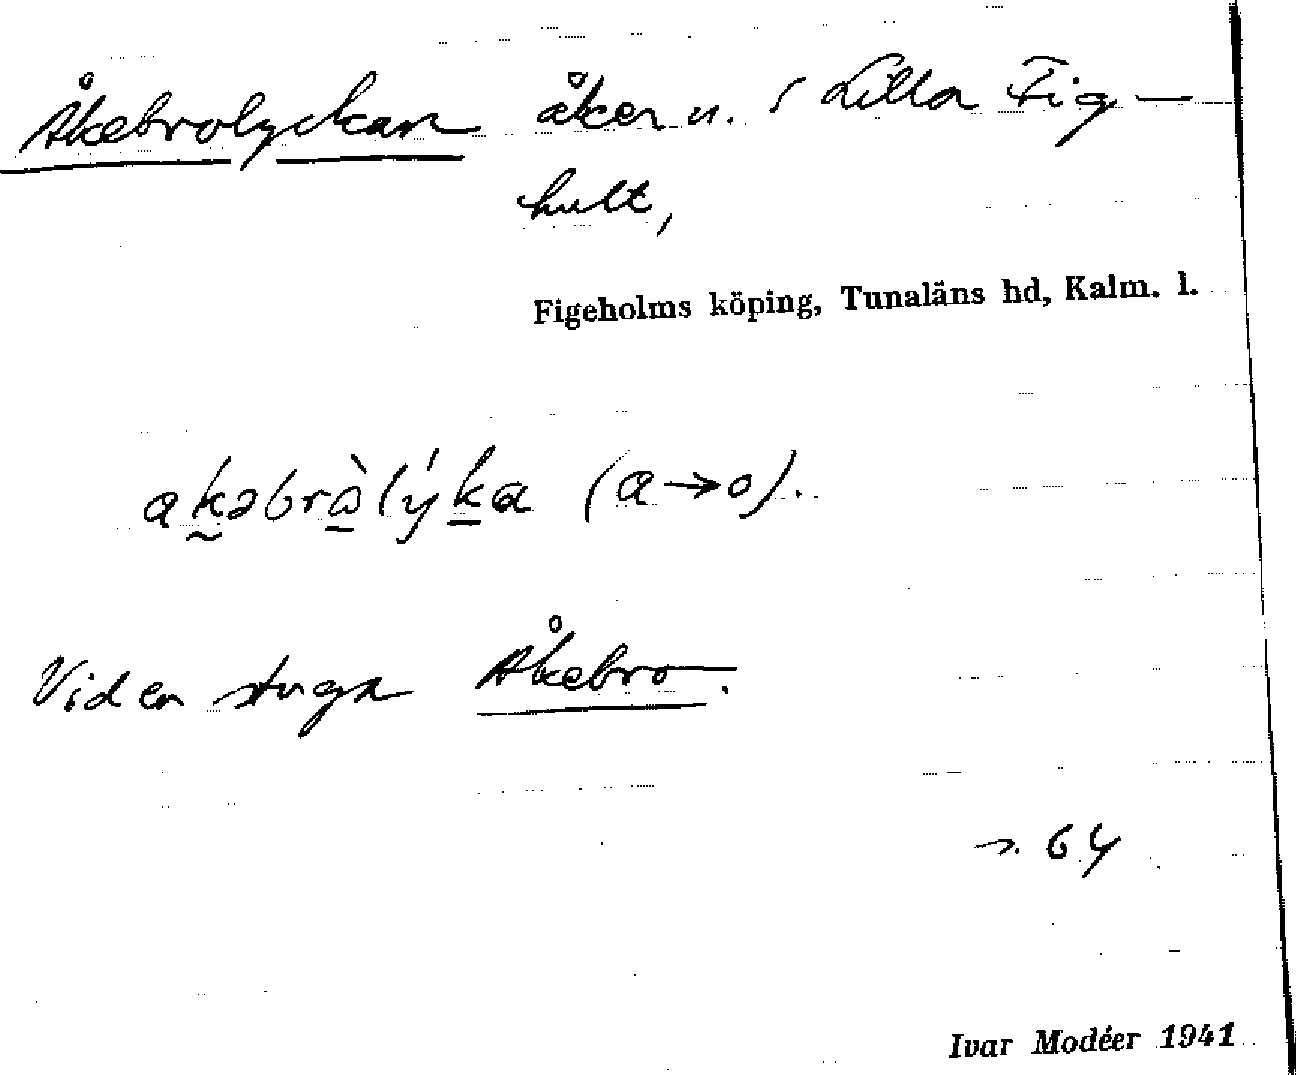 Åkebrolyckan åker n. i Lilla Fig-
hult,
Figeholms köping, Tunaläns hd, Kalm. l.
akəbrὰlýka (a→o).
Vid en stuga Åkebro.
s. 64
Ivar Modéer 1941